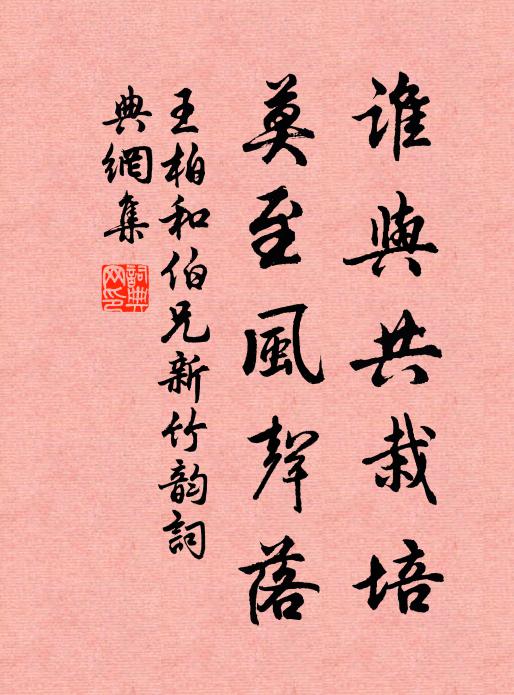 誰與共栽培
莫至風聲落
王柏和伯兄新竹韵詞
典網集
詞典網印